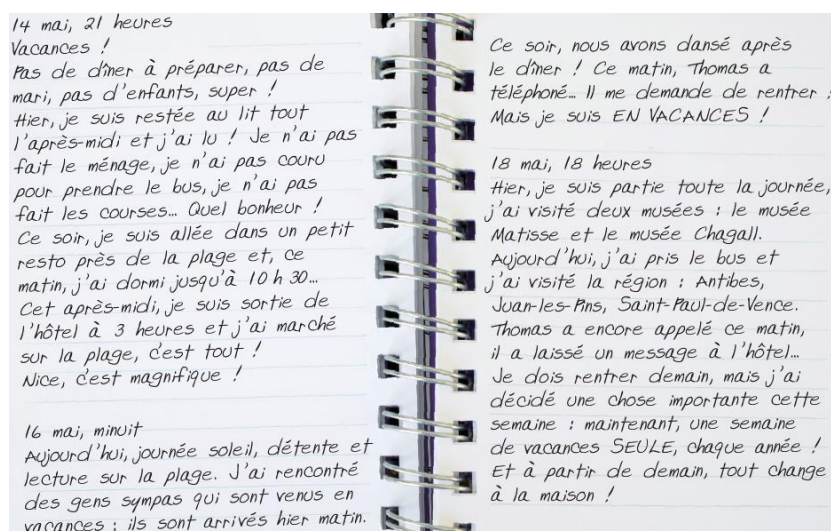 14 mai, 21 heures
Vacances !
Pas de dîner à préparer, pas de
mari, pas d'enfants, super !
Hier, je suis restée au lit tout
l'après-midi et j'ai lu ! Je n'ai pas
fait le ménage, je n'ai pas couru
pour prendre le bus, je n'ai pas
fait les courses... Quel bonheur !
Ce soir, je suis allée dans un petit
resto près de la plage et, ce
matin, j'ai dormi jusqu'à 10 h 30...
Cet après-midi, je suis sortie de
l'hôtel à 3 heures et j'ai marché
sur la plage, c'est tout !
Nice, c'est magnifique !
16 mai, minuit
Aujourd'hui, journée soleil, détente et
lecture sur la plage. J'ai rencontré
des gens sympas qui sont venus en
vacances : ils sont arrivés hier matin.
Ce soir, nous avons dansé après
le dîner ! Ce matin, Thomas a
téléphoné... Il me demande de rentrer !
Mais je suis EN VACANCES !
18 mai, 18 heures
Hier, je suis partie toute la journée,
j'ai visité deux musées : le musée
Matisse et le musée Chagall.
Aujourd'hui, j'ai pris le bus et
j'ai visité la région : Antibes,
Juan-les-Pins, Saint-Paul-de-Vence.
Thomas a encore appelé ce matin,
il a laissé un message à l'hôtel...
Je dois rentrer demain, mais j'ai
décidé une chose importante cette
semaine : maintenant, une semaine
de vacances SEULE, chaque année !
Et à partir de demain, tout change
à la maison !